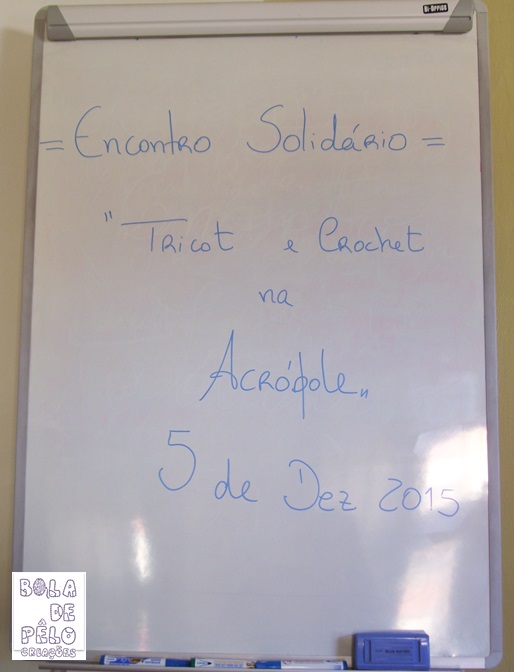 Bi-OFFICE
= Encontro Solidário =
"Tricot e Crochet
na
Acrópole"
5 de Dez 2015
BOLA
DE
PÊLO
CREAÇÕES